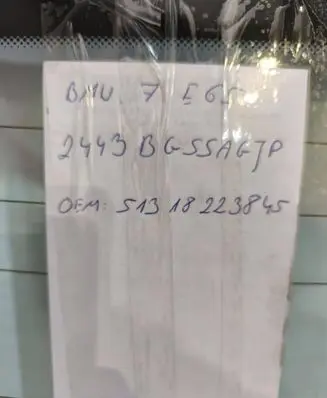 BMW 7 E65
2443BGSSAGJP
OEM: 51318223845